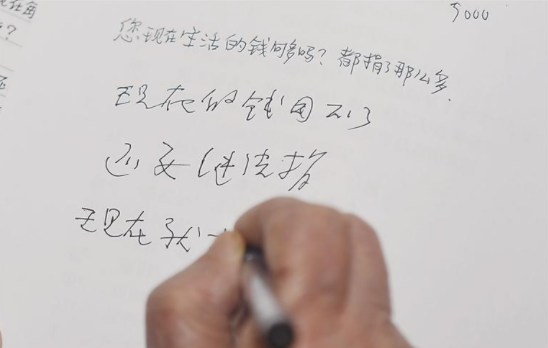 5000
您现在生活的钱够吗？都捐了那么多.
现在的钱用不了
还要继续捐
现在